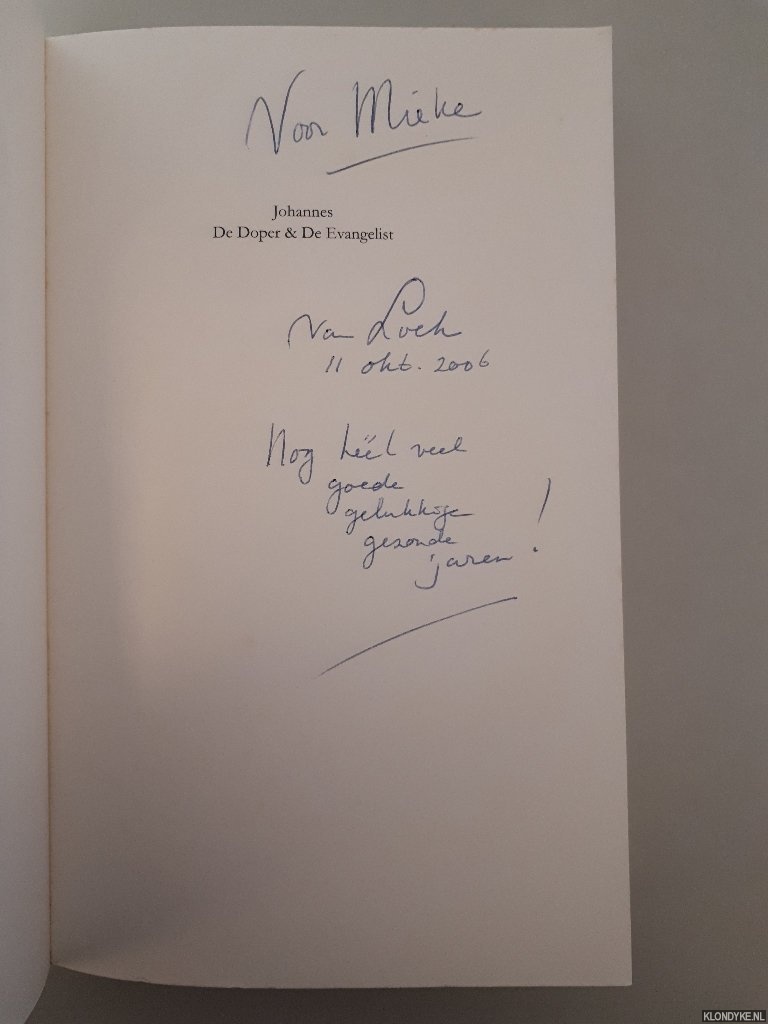 Voor Mieke
Johannes
De Doper & De Evangelist
van Loek
11 okt. 2006
Nog héél veel
goede
gelukkige
gezonde
jaren!
KLONDYKE.NL